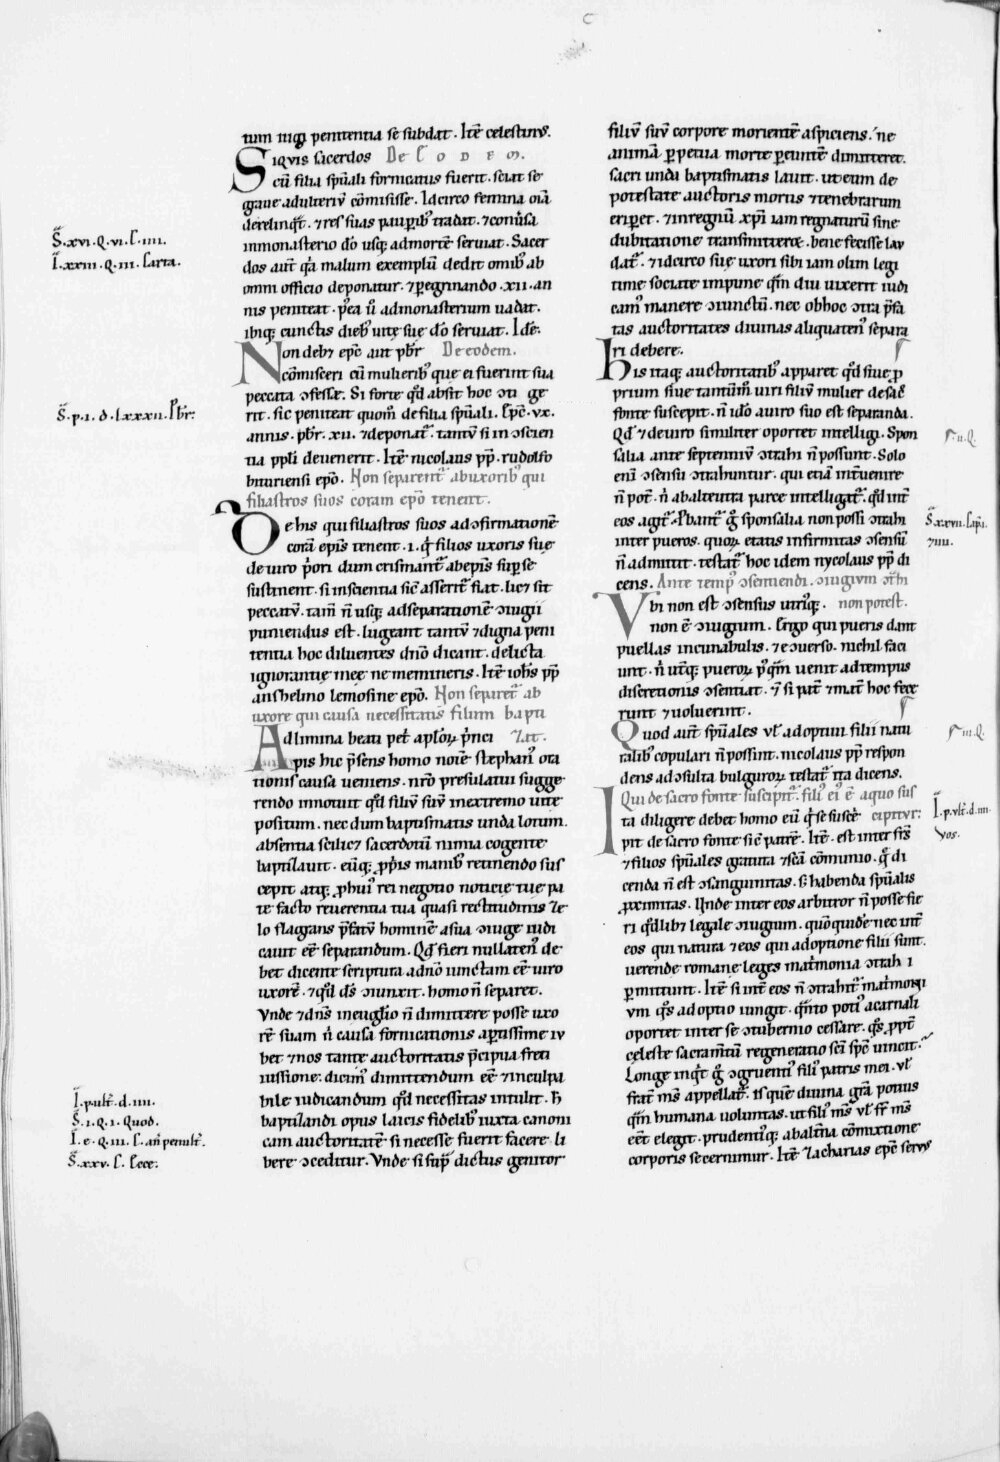 tum iugi penitentia se subdat. Itē celestinꝰ.
Siquis sacerdos De Eodem.
cū filia spūali fornicatus fuerit. sciat se
graue adulteriū cōmisisse. Idcirco femina oīa
derelinqat. ⁊ res suas pauperibꝰ tradat. ⁊ conuersa
in monasterio dō usq; ad mortē seruiat. Sacer
dos aut̄ qͥa malum exemplū dedit omībꝰ ab
omni officio deponatur. ⁊ peregrinando .xii. an
nis peniteat. p̄ea ū ad monasterium uadat.
ibiq; cunctis diebꝰ uite sue dō seruiat. Idē.
Non debꝫ ep̄c aut pb̄r De eodem.
cōmisceri cū mulieribꝰ que ei fuerint sua
peccata ɔfesse. Si forte qd̄ absit hoc ɔti ge
rit. sic peniteat quom̄ de filia spūali. Ep̄c .xv.
annis. pb̄r .xii. ⁊ deponat̄. tantū si in ɔscien
tia ppli deuenerit. Itē nicolaus pp̄. rudolfo
bituriensi ep̄o. Non separent̄ ab uxoribꝰ qui
filiastros suos coram ep̄o tenent.
De his qui filiastros suos ad ɔfirmationē
corā ep̄is tenent .i. qͥ filios uxoris sue
de uiro p̄ori dum crismant̄ ab ep̄is sup̄ se
sustinent. si inscientia sic̄ asserit̄ fiat. licꝫ sit
peccatū. tam̄ n̄ usq; ad separationē ɔiugii
puniendus est. lugeant tantū ⁊ digna peni
tentia hoc diluentes dn̄o dicant. delicta
ignorantie mee ne memineris. Itē ioh̄s pp̄
anshelmo lemosine ep̄o. Non separet̄ ab
uxore qui causa necessitatis filium bapti
Ad limina beati pet̄ aplōꝝ p̄nci zat.
pis hic p̄sens homo noīe stephanꝰ ora
tionis causa ueniens. nr̄o presulatui sugge
rendo innotuit qd̄ filiū suū in extremo uite
positum. nec dum baptismatis unda lotum.
absentia scilicꝫ sacerdotū nimia cogente
baptizauit. eūq; p̄priis manibꝰ retinendo sus
cepit atq; p̄ huiꝰ rei negotio noticie tue pa
te facto reuerentia tua quasi rectitudinis ze
lo flagrans p̄fatū hominē a sua ɔiuge iudi
cauit eē separandum. Qd̄ fieri nullatenꝰ de
bet dicente scriptura a dn̄o iunctam eē uiro
uxorē. ⁊ qd̄ ds̄ ɔiunxit. homo n̄ separet.
Vnde ⁊ dn̄s in euglīo n̄ dimittere posse uxo
rē suam n̄ causa fornicationis apertissime iu
bet ⁊ nos tante auctoritatis p̄cipua freti
iussione. dicimꝰ dimittendum eē ⁊ inculpa
bile iudicandum qd̄ necessitas intulit. H̄
baptizandi opus laicis fidelibꝰ iuxta canoni
cam auctoritatē si necesse fuerit facere li
bere ɔceditur. Vnde si sup̄dictus genitor
filiū suū corpore morientē aspiciens. ne
animā p̄petua morte pereuntē dimitteret.
sacri unda baptismatis lauit. ut eum de
potestate auctoris mortis ⁊ tenebrarum
eriperet. ⁊ in regnū xp̄i iam regnaturū sine
dubitatione transmitteret. bene fecisse lau
dat̄. ⁊ idcirco sue uxori sibi iam olim legi
time sociate impune qͣm diu uixerit iudi
camꝰ manere ɔiunctū. nec ob hoc ɔtra p̄fa
tas auctoritates diuinas aliquatenꝰ separa
ri debere.
His itaq; auctoritatibꝰ apparet qd̄ siue p̄
prium siue tantūm̄ uiri filiū mulier de sac̄
fonte suscepit. n̄ idō a uiro suo est separanda.
Qd̄ ⁊ de uiro similiter oportet intelligi. Spon
salia ante septenniū ɔtrahi n̄ possunt. Solo
enī ɔsensu ɔtrahuntur. qui etiā int̄uenire
n̄ pot̄. n̄ ab alteruta parte intelligat̄. qd̄ int̄
eos agit̄. Pbant̄ g̊ sponsalia non possi ɔtrahi
inter pueros. quoꝝ etatis infirmitas ɔsensū
n̄ admittit. testat̄ hoc idem nycolaus pp̄ di
cens. Ante tempꝰ ɔsentiendi. ɔiugium ɔt̄hi
Vbi non est ɔsensus utriq;. non potest.
non ē ɔiugium. Ergo qui pueris dant
puellas in cunabulis. ⁊ ecɔuerso. nichil faci
unt. n̄ utq; pueroꝝ pꝰqͣm uenit ad tempus
discretionis ɔsentiat. ⁊ si pat̄ ⁊ mat̄ hoc fece
runt ⁊ uoluerint.
Quod aut̄ spūales vl̄ adoptiui filii natu
ralibꝰ copulari n̄ possint. nicolaus pp̄ respon
dens ad ɔsulta bulgaroꝝ testat̄ ita dicens.
Qui de sacro fonte suscipit̄. filiꝰ eiꝰ ē a quo sus
Ita diligere debet homo eū qͥ se suscē cipitur:
pit de sacro fonte sic̄ patrē. Itē. est inter fr̄s
⁊ filios spūales gratuita ⁊ scā cōmunio. q̄ di
cenda n̄ est ɔsanguinitas. s; habenda spūalis
proximitas. Vnde inter eos arbitror n̄ posse fie
ri qͥdlibꝫ legale ɔiugium. quōquidē nec int̄
eos qui natura ⁊ eos qui adoptione filii sunt.
uerende romane leges mat̄monia ɔtrahi
p̄mittunt. Itē si int̄ eos n̄ ɔtrahit̄ mat̄moni
um. qͦs adoptio iungit. qͣnto potiꝰ a carnali
oportet inter se ɔtubernio cessare. qͦs ppt̄
celeste sacram̄tū regeneratio scī sp̄c uincit.
Longe inqͥt g̊ ɔgruentiꝰ filiꝰ patris mei. vl̄
frat̄ mꝰ appellat̄. is quē diuina grā potius
qͣm humana uoluntas. ut filiꝰ mꝰ vl̄ fr̄ mꝰ
eēt elegit. prudentiꝰq; ab alt̄na cōmixtione
corporis secernimur. Itē Zacharias ep̄c seruꝰ
S̄. xvi. q. vi. c. iiii.
I. xxiii. q. iii. Carta.
S̄. p. i. d. lxxxii. Pb̄r.
I. p. ult̄. d. iiii.
S̄. i. q. i. Quod.
I. e. q. iii. c. an̄ penult̄.
S̄. xxv. c. Ecce.
⸿. ii. q.
S̄. xxvii. cap̄i.
⁊ iiii.
⸿ iii. q.
I. p. vlt̄. d. iiii.
Vos.